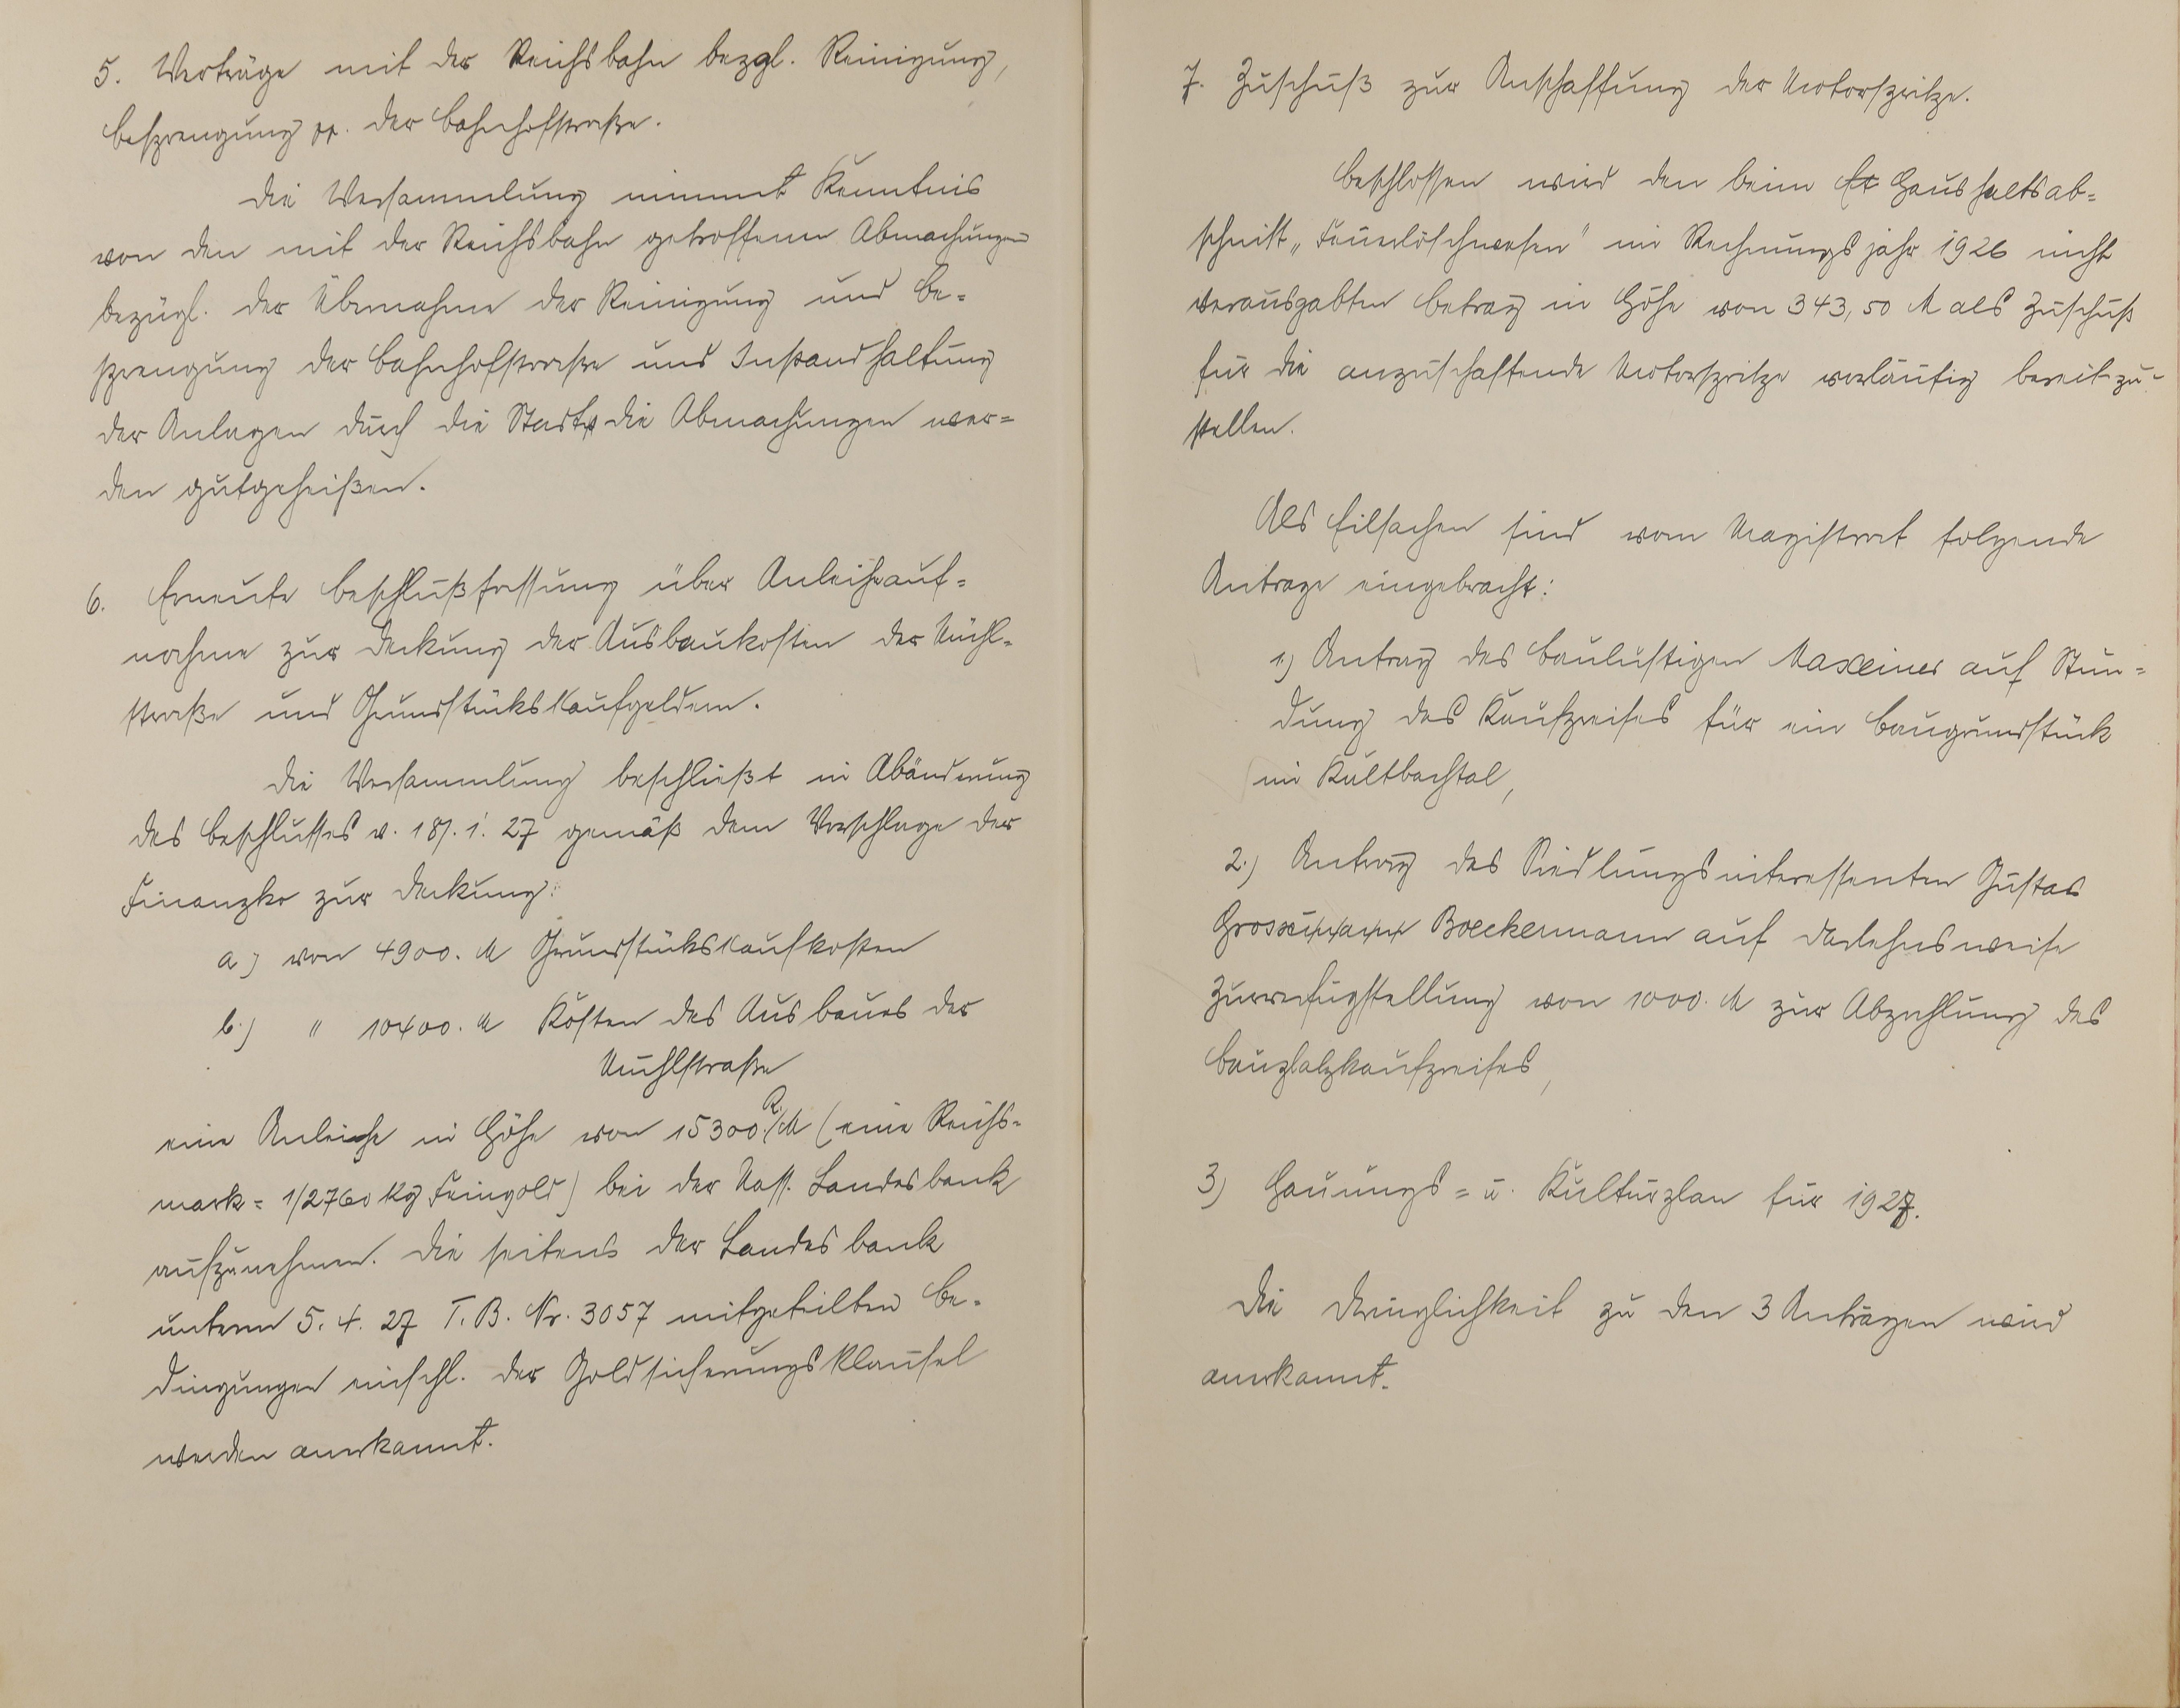 5. Verträge mit der Reichsbahn bezgl. Reinigung,
Besprengung pp. der Bahnhofstraße.
Die Versammlung nimmt Kenntnis
von den mit der Reichsbahn getroffenen Abmachungen
bezügl. der Übernahme der Reinigung und Be=
sprengung der Bahnhofstraße und Instandhaltung
der Anlagen durch die Stadt, die Abmachungen wer=
den gutgeheißen.
6. Erneute Beschlußfassung über Anleiheauf=
nahme zur Deckung der Ausbaukosten der Mühl=
straße und Grundstückskaufgeldern.
Die Versammlung beschließt in Abänderung
des Beschlusses v. 18. 1. 27 gemäß dem Vorschlage der
Finanzko zur Deckung:
a) von 4900. M Grundstückskaufkosten
b.) " 10400. M Kosten des Ausbaues der
Mühlstraße
eine Anleihe in Höhe von 15300. R/M (eine Reichs=
mark = 1/2760 Kg Feingold) bei der Nass. Landesbank
aufzunehmen. Die seitens der Landesbank
unterm 5. 4. 27 T. B. Nr. 3057 mitgeteilten Be=
dingungen einschl. der Goldsicherungsklausel
werden anerkannt.
7. Zuschuß zur Anschaffung der Motorspritze.
Beschlossen wird den beim Et Haushaltsab=
schnitt „Feuerlöschwesen" im Rechnungsjahr 1926 nicht
verausgabten Betrag in Höhe von 343,50 M als Zuschuß
für die anzuschaffende Motorspritze vorläufig bereitzu=
stellen.
Als Eilsachen sind vom Magistrat folgende
Antrage eingebracht:
1.) Antrag des Baulustigen Maxeiner auf Stun=
dung des Kaufpreises für ein Baugrundstück
im Kaltbachtal,
2.) Antrag des Siedlungsinteressenten Gustav
Boeckermann auf darlehnsweise
Zurverfugstellung von 1000. M zur Abzahlung des
Bauplatzkaufpreises,
3) Hauungs= u. Kulturplan für 1927.
Die Dringlichkeit zu den 3 Anträgen wird
anerkannt.